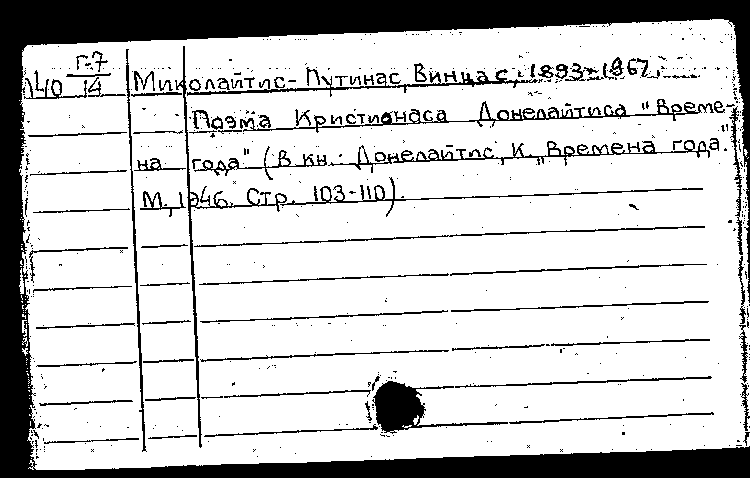 Г-7
140 14 Миколайтис-Путинас, Винцас, 1893-1967.
Поэма Кристионаса Донелайтиса "Време-
на года" (В кн.: Донелайтис, К. „Времена года."
М., 1946. Стр. 103-110).